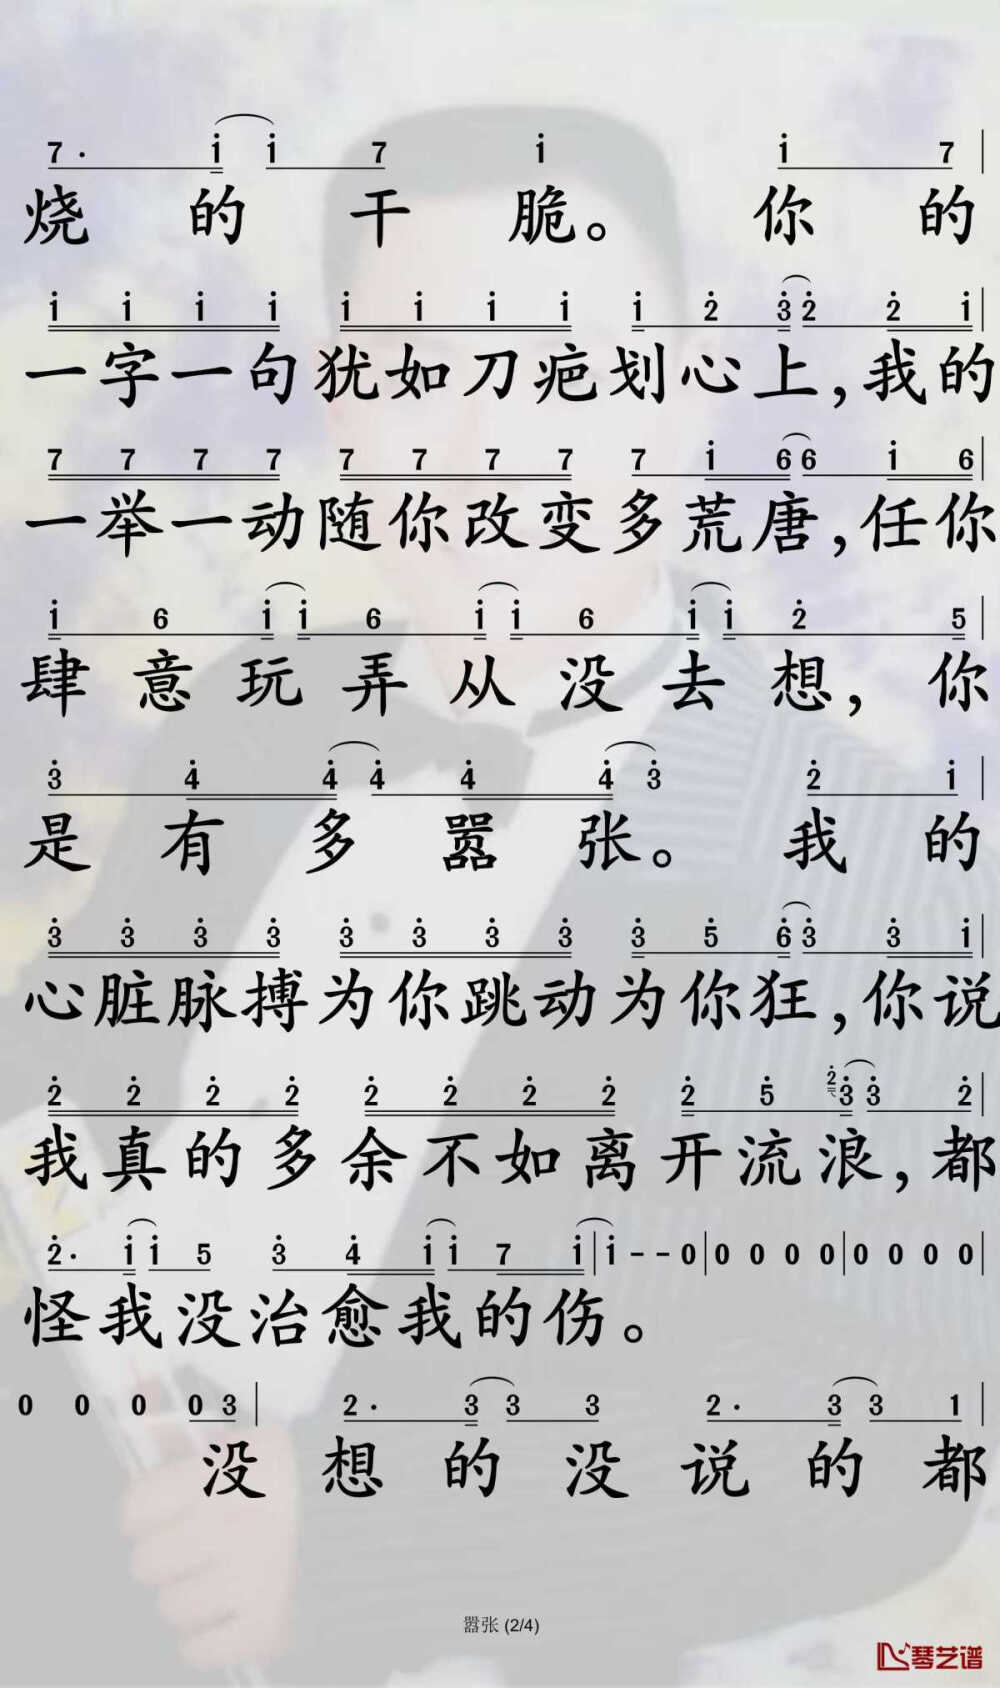 7· i i 7 i i 7
烧的干脆。你的
i i i i i i i i i 2 3 2 2 i
一字一句犹如刀疤划心上,我的
7 7 7 7 7 7 7 7 7 i 6 6 i 6
一举一动随你改变多荒唐,任你
i 6 i i 6 i i 6 i i 2 5
肆意玩弄从没去想,你
3 4 4 4 4 4 3 2 i
是有多嚣张。我的
3 3 3 3 3 3 3 3 3 5 6 3 3 i
心脏脉搏为你跳动为你狂,你说
2 2 2 2 2 2 2 2 2 5 2 3 3 2
我真的多余不如离开流浪,都
2· i i 5 3 4 i i 7 i | i - - 0 | 0 0 0 0 | 0 0 0 0 |
怪我没治愈我的伤。
0 0 0 0 3 | 2· 3 3 3 2· 3 3 1 |
没想的没说的都
嚣张 (2/4)
琴艺谱